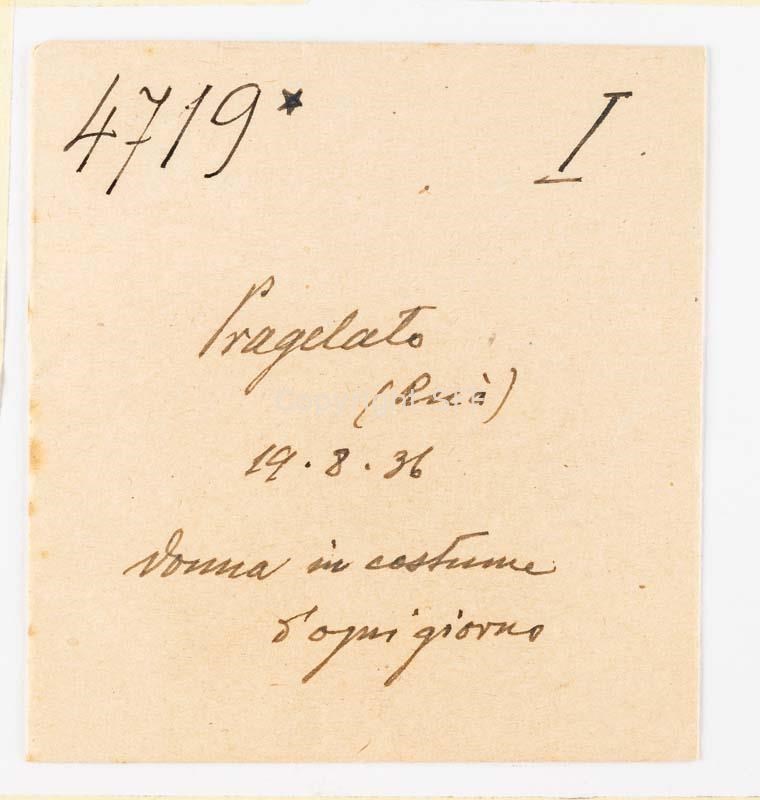 4719* I
Pragelato
(Ruà)
19.8.36
donna in costume
d'ogni giorno